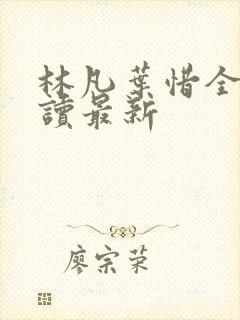 林凡葉惜全
讀最新
廖宗荣